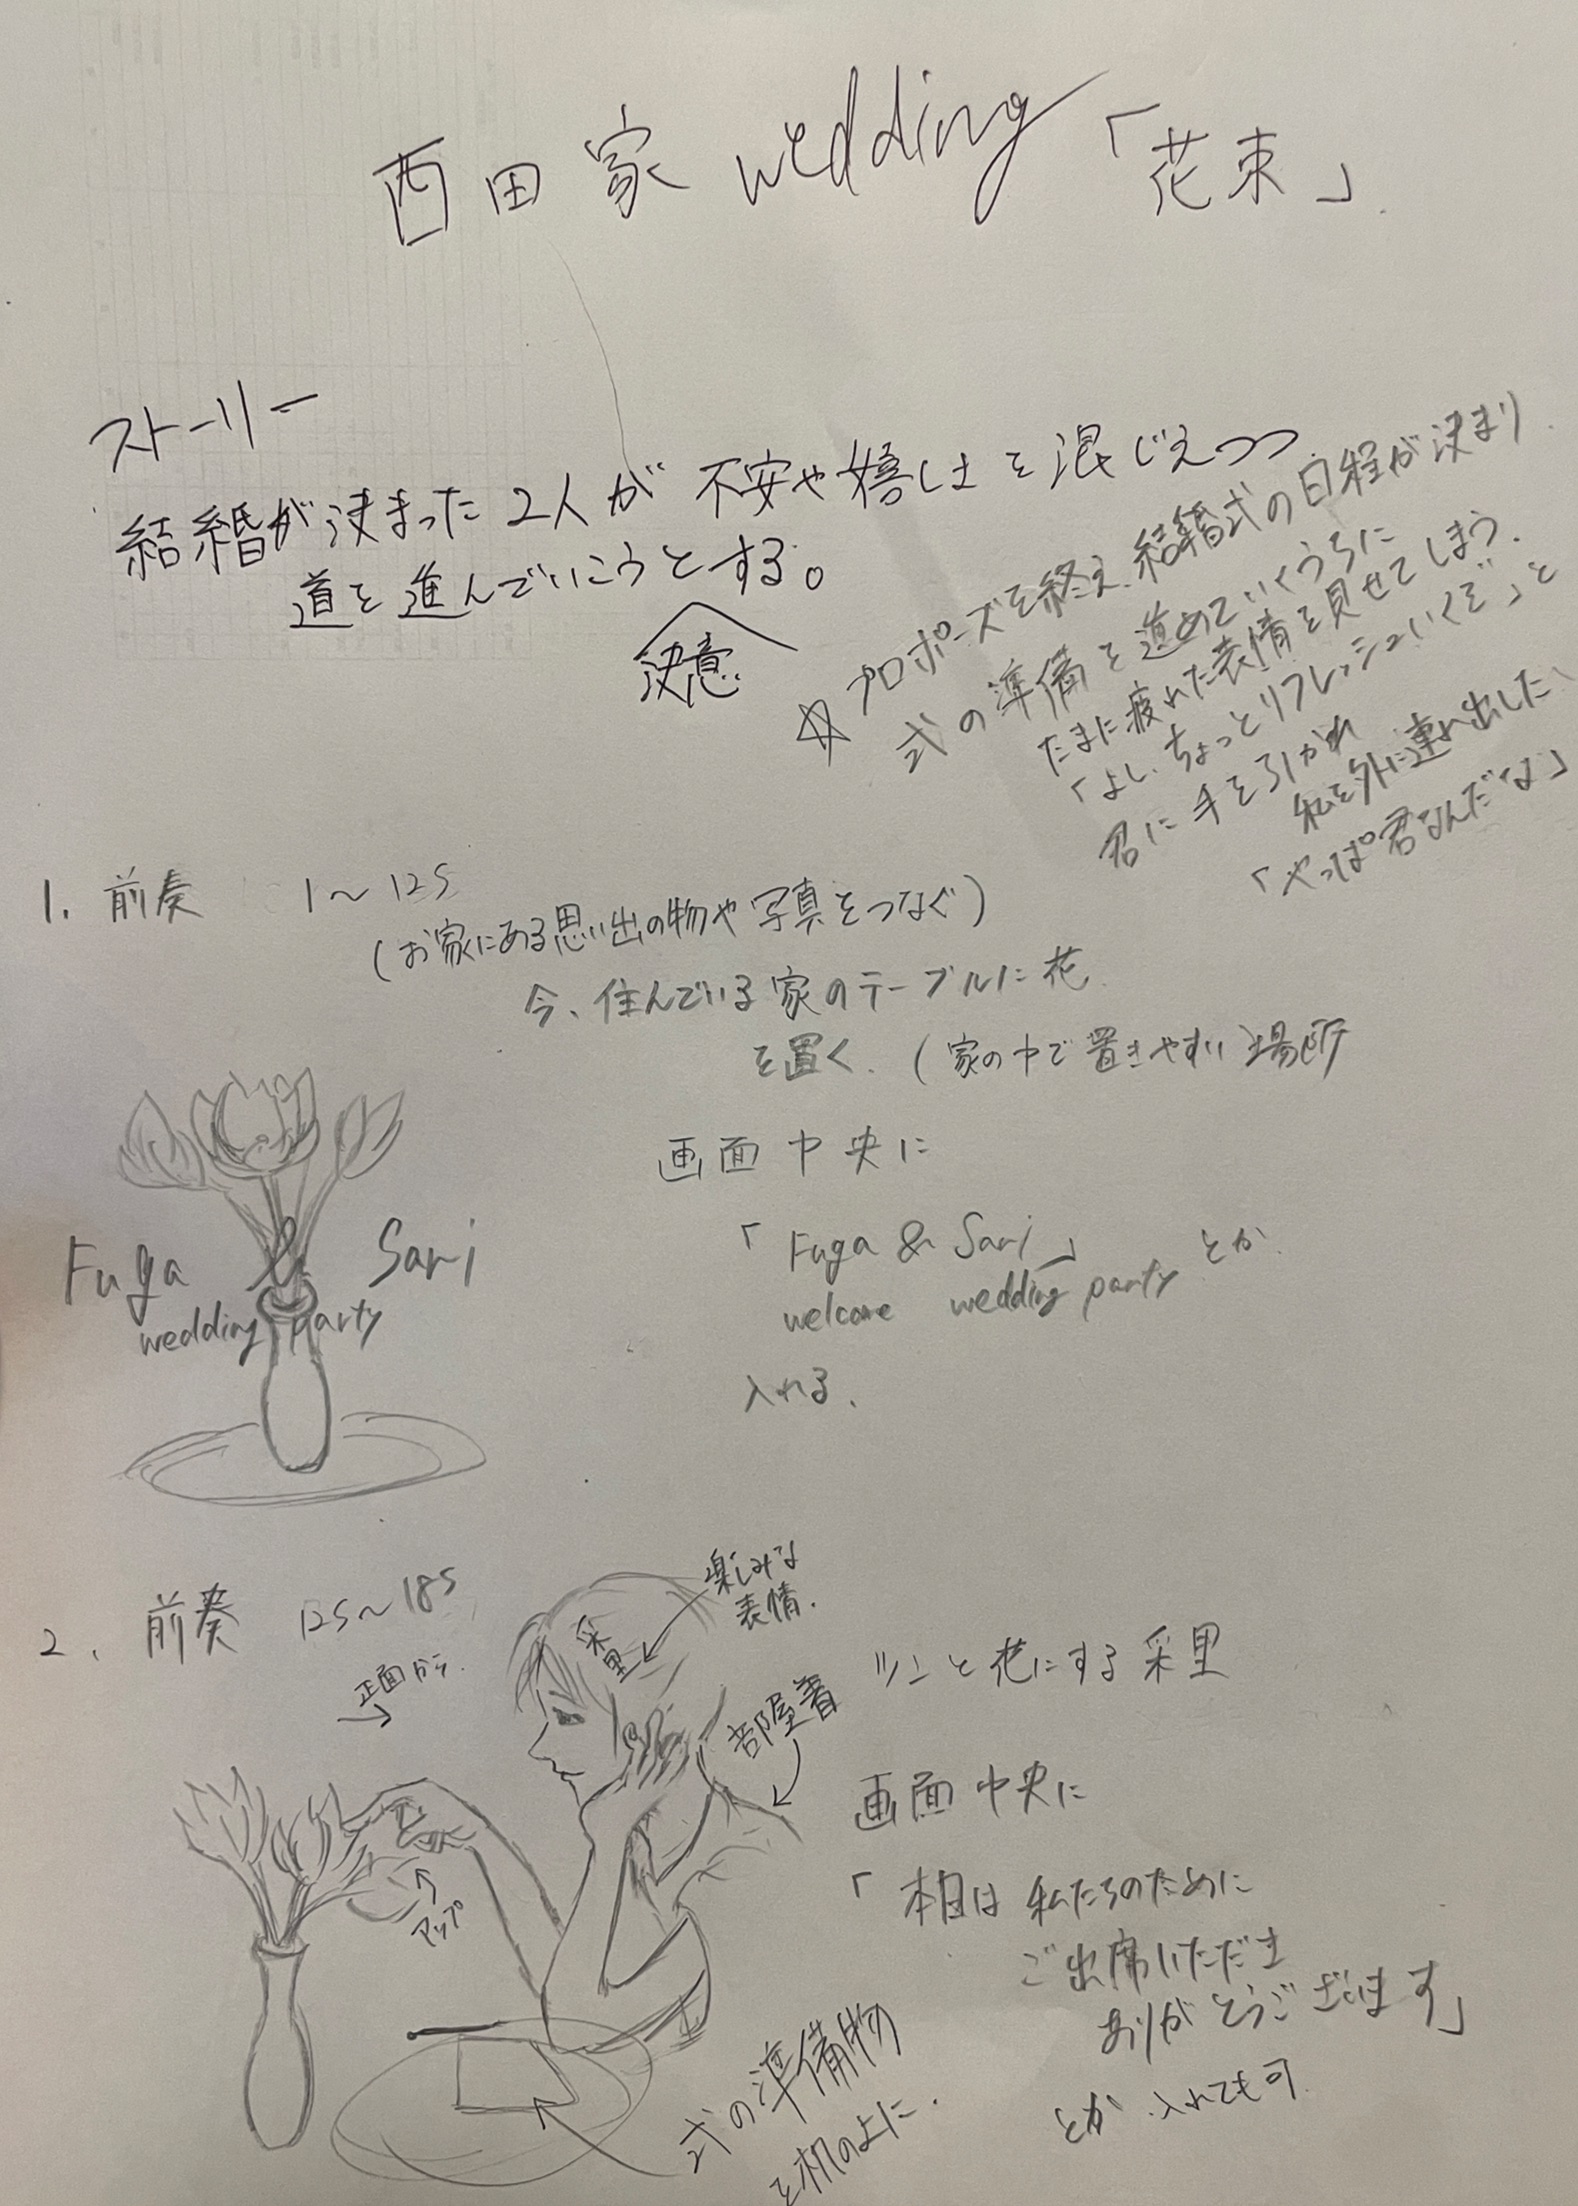 西田家 wedding 「花束」
ストーリー
結婚が決まった2人が 不安や嬉しさを混じえつつ
道を進んでいこうとする。
決意
☆ プロポーズを終え、結婚式の日程が決まり
式の準備を進めていくうちに
たまに疲れた表情を見せてしまう。
「よし、ちょっとリフレッシュいくぞ」と
君に手を引かれ
私を外に連れ出した、
「やっぱ君なんだな」
1. 前奏 1〜12S
(お家にある思い出の物や写真をつなぐ)
今、住んでいる家のテーブルに花
を置く. (家の中で置きやすい場所
画面中央に
「Fuga & Sari」
welcome wedding party とか
入れる、
Fuga & Sari
wedding party
2. 前奏 12S〜18S
正面から
楽しみな
表情.
采里
部屋着
ツンと花にする采里
アップ
画面中央に
「本日は 私たちのために
ご出席いただき
ありがとうございます」
とか 入れても可
式の準備物
を机の上に.